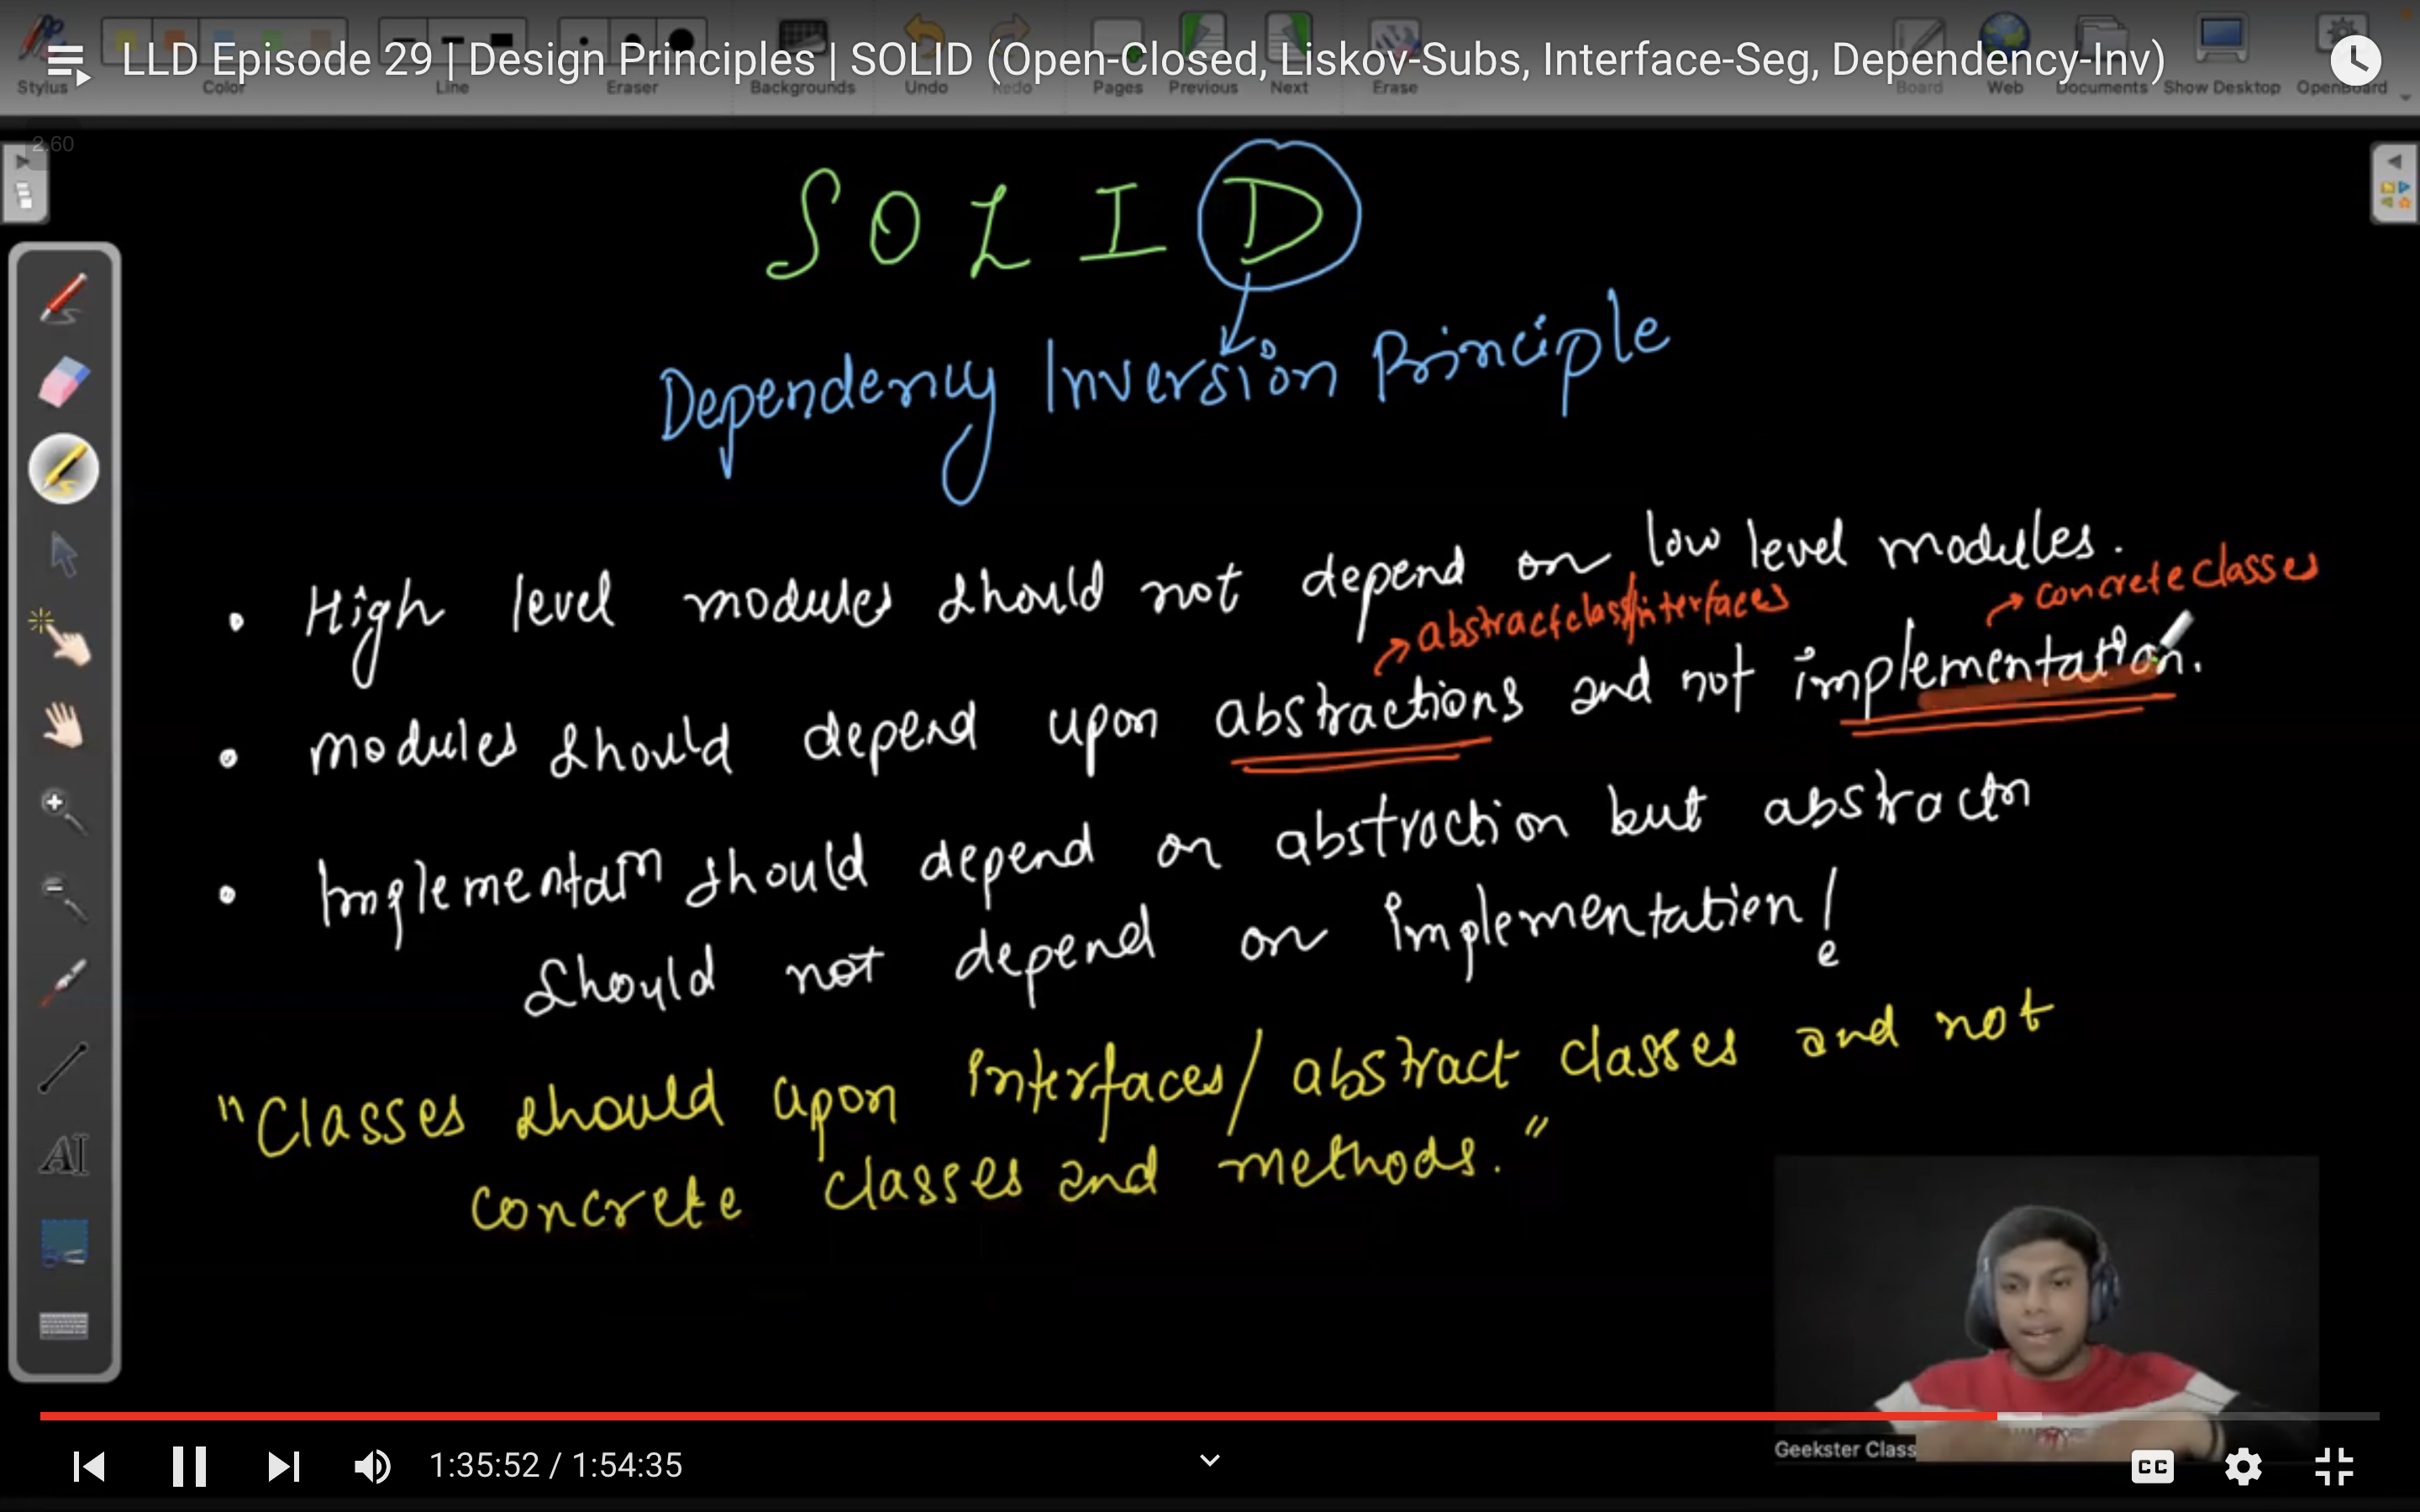 LLD Episode 29 | Design Principles | SOLID (Open-Closed, Liskov-Subs, Interface-Seg, Dependency-Inv)
Stylus Color Line Eraser Backgrounds Undo Redo Pages Previous Next Erase Board Web Documents Show Desktop OpenBoard
2.60
SOLID
Dependency Inversion Principle
• High level modules should not depend on low level modules.
→ abstract class/interfaces → concrete classes
• modules should depend upon abstractions and not implementation.
• Implementatn should depend on abstraction but abstractn
should not depend on implementation!
"Classes should upon interfaces/ abstract classes and not
concrete classes and methods."
AI
Geekster Class
1:35:52 / 1:54:35
CC